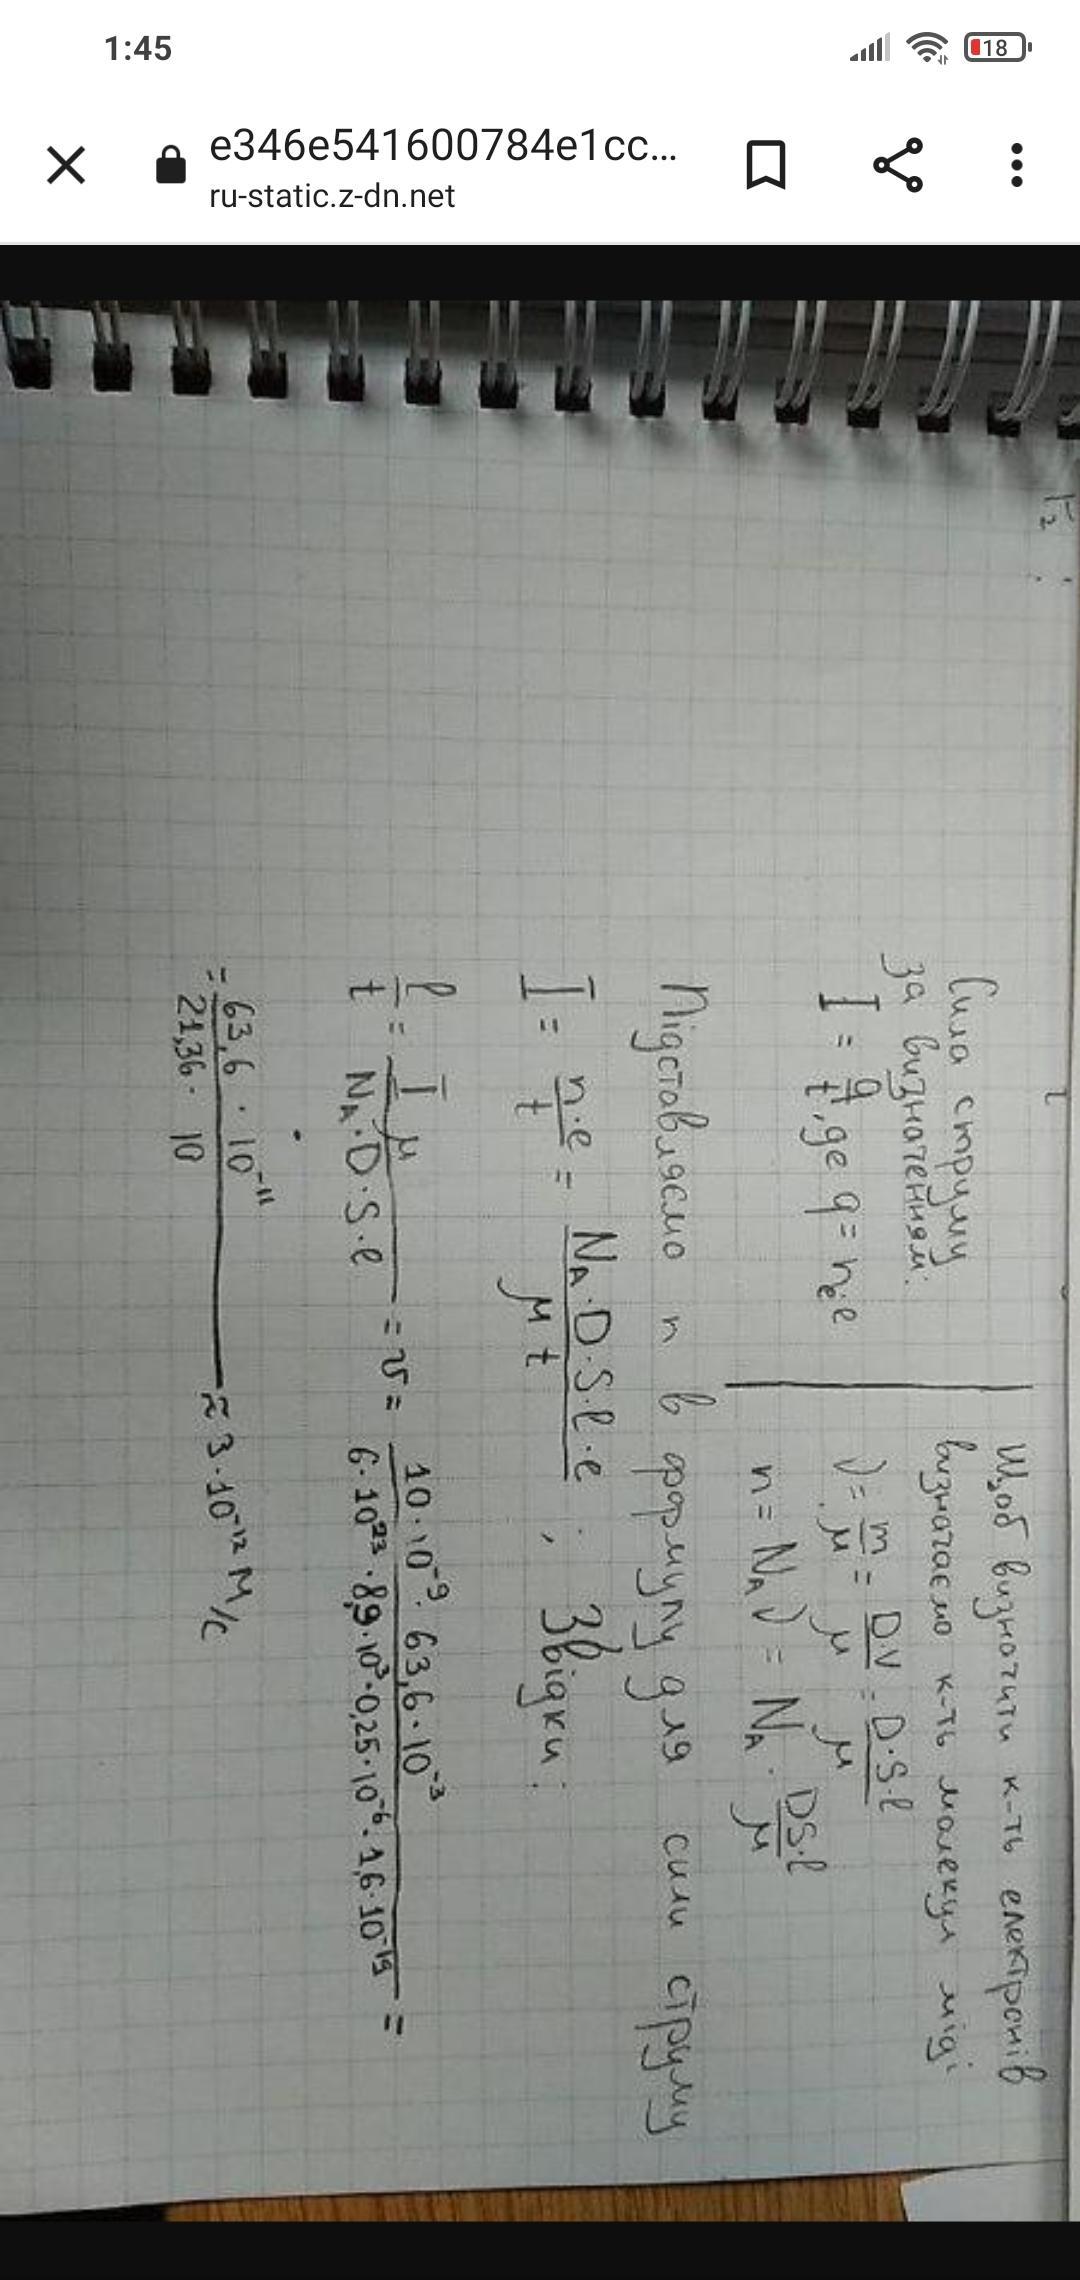 1:45
18
e346e541600784e1cc...
ru-static.z-dn.net
Сила струму
за визначенням:
I = q/t, де q = nₑe
Щоб визначити к-ть електронів
визначаємо к-ть молекул міді
ν = m/μ = DV/μ = D·S·l/μ
n = N_A ν = N_A · DS·l/μ
Підставляємо n в формулу для сили струму
I = n·e/t = N_A·D·S·l·e/μt ; Звідки:
l/t = Iμ/N_A·D·S·e = v = 10·10⁻⁹·63,6·10⁻³/6·10²³·8,9·10³·0,25·10⁻⁶·1,6·10⁻¹⁹ =
= 63,6·10⁻¹¹/21,36·10 ≈ 3·10⁻¹² м/с